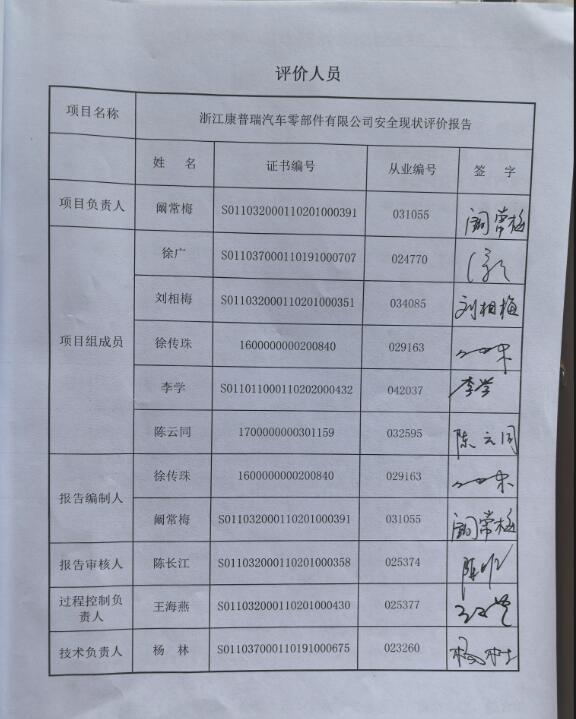 评价人员
项目名称 浙江康普瑞汽车零部件有限公司安全现状评价报告
姓 名 证书编号 从业编号 签 字
项目负责人 阚常梅 S011032000110201000391 031055 阚常梅
徐广 S011037000110191000707 024770
刘相梅 S011032000110201000351 034085 刘相梅
项目组成员 徐传珠 1600000000200840 029163
李学 S011011000110202000432 042037 李学
陈云同 1700000000301159 032595 陈云同
徐传珠 1600000000200840 029163
报告编制人
阚常梅 S011032000110201000391 031055 阚常梅
报告审核人 陈长江 S011032000110201000358 025374
过程控制负
责人 王海燕 S011032000110201000430 025377
技术负责人 杨 林 S011037000110191000675 023260 杨林